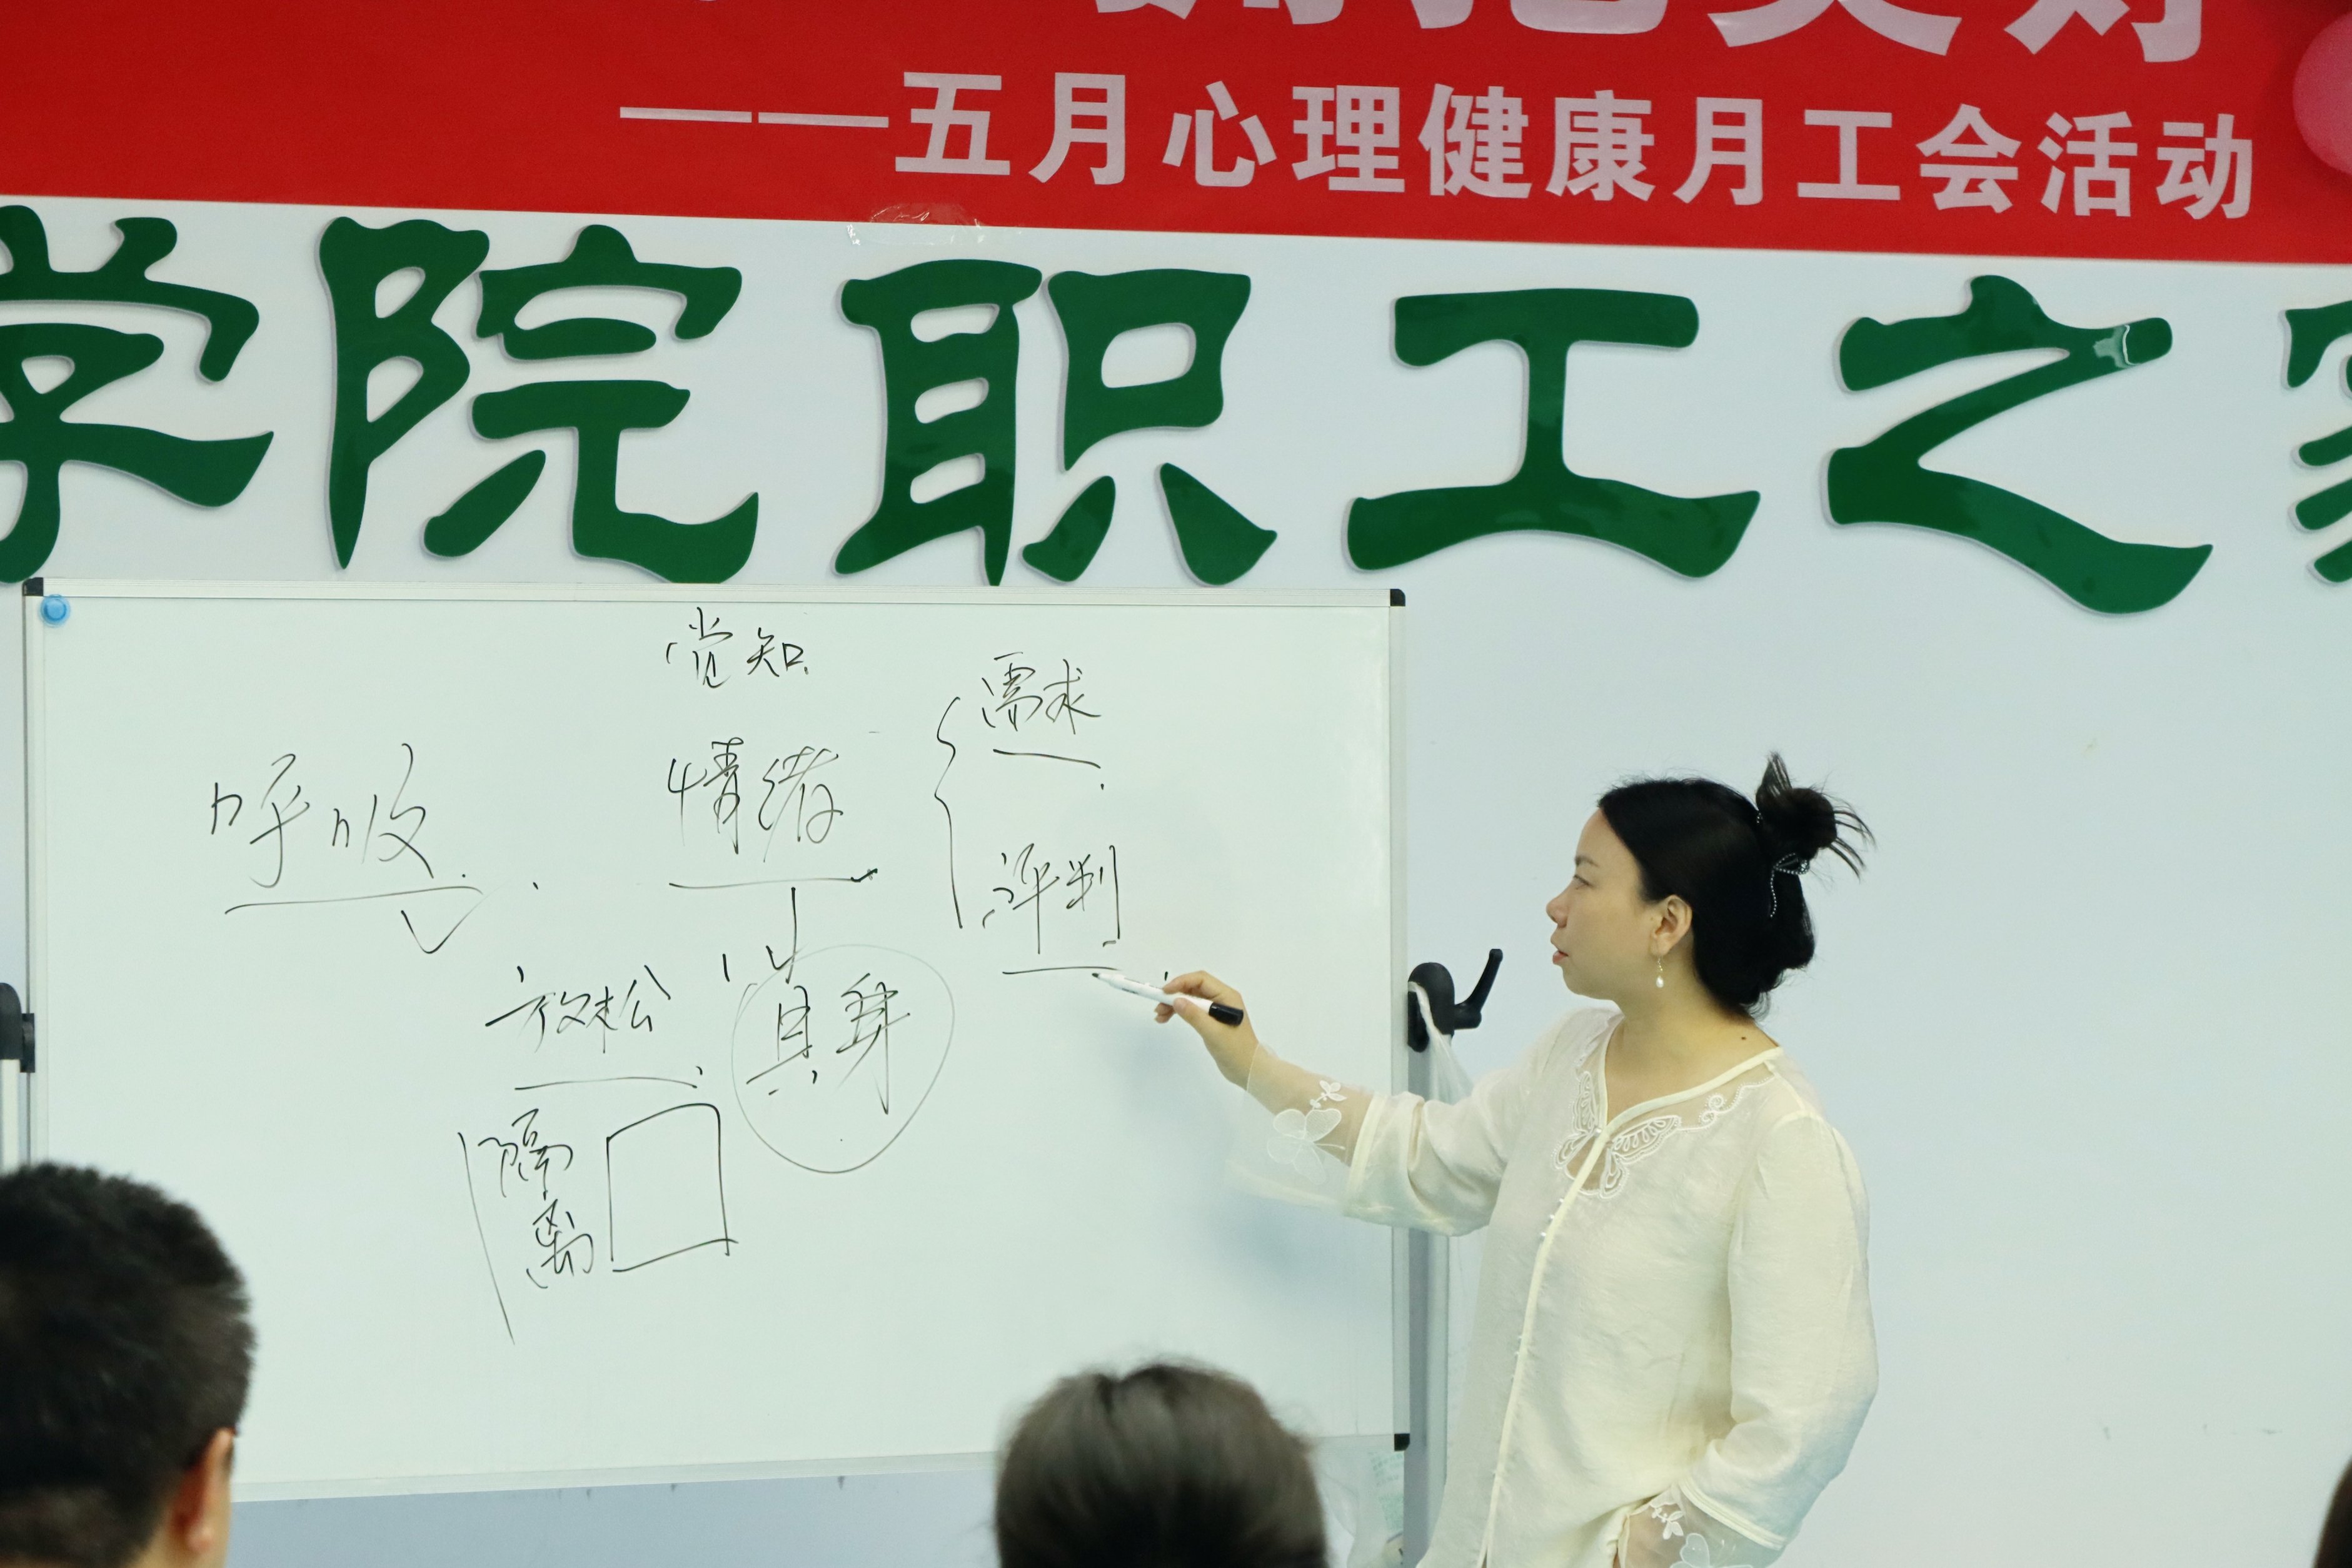 拥抱美好
——五月心理健康月工会活动
学院职工之家
觉知
需求
情绪
呼吸
评判
放松
具身
隔离